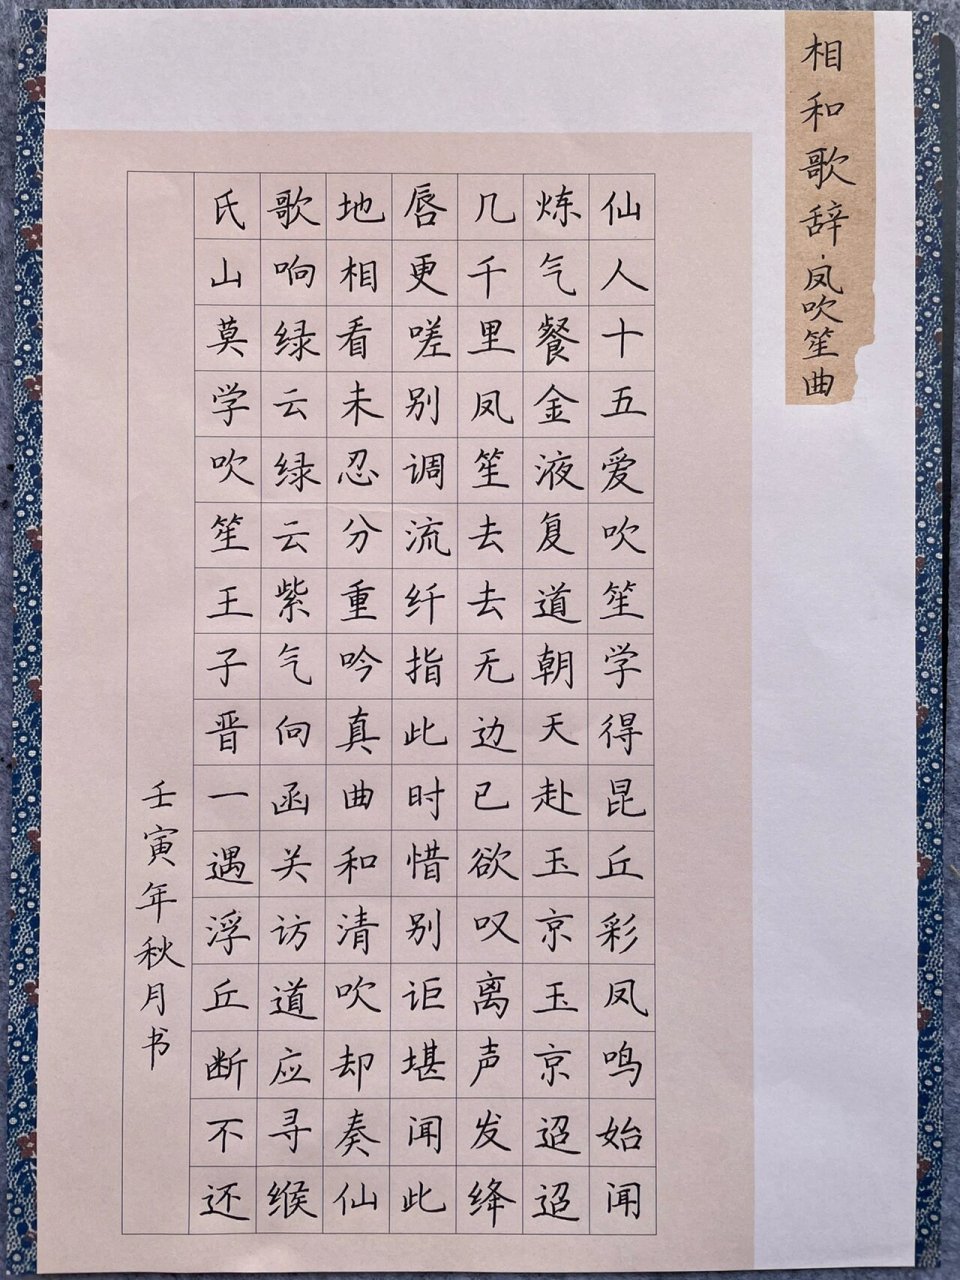 相和歌辞·凤吹笙曲
仙人十五爱吹笙学得昆丘彩凤鸣始闻
炼气餐金液复道朝天赴玉京玉京迢迢
几千里凤笙去去无边已欲叹离声发绛
唇更嗟别调流纤指此时惜别讵堪闻此
地相看未忍分重吟真曲和清吹却奏仙
歌响绿云绿云紫气向函关访道应寻缑
氏山莫学吹笙王子晋一遇浮丘断不还
壬寅年秋月书